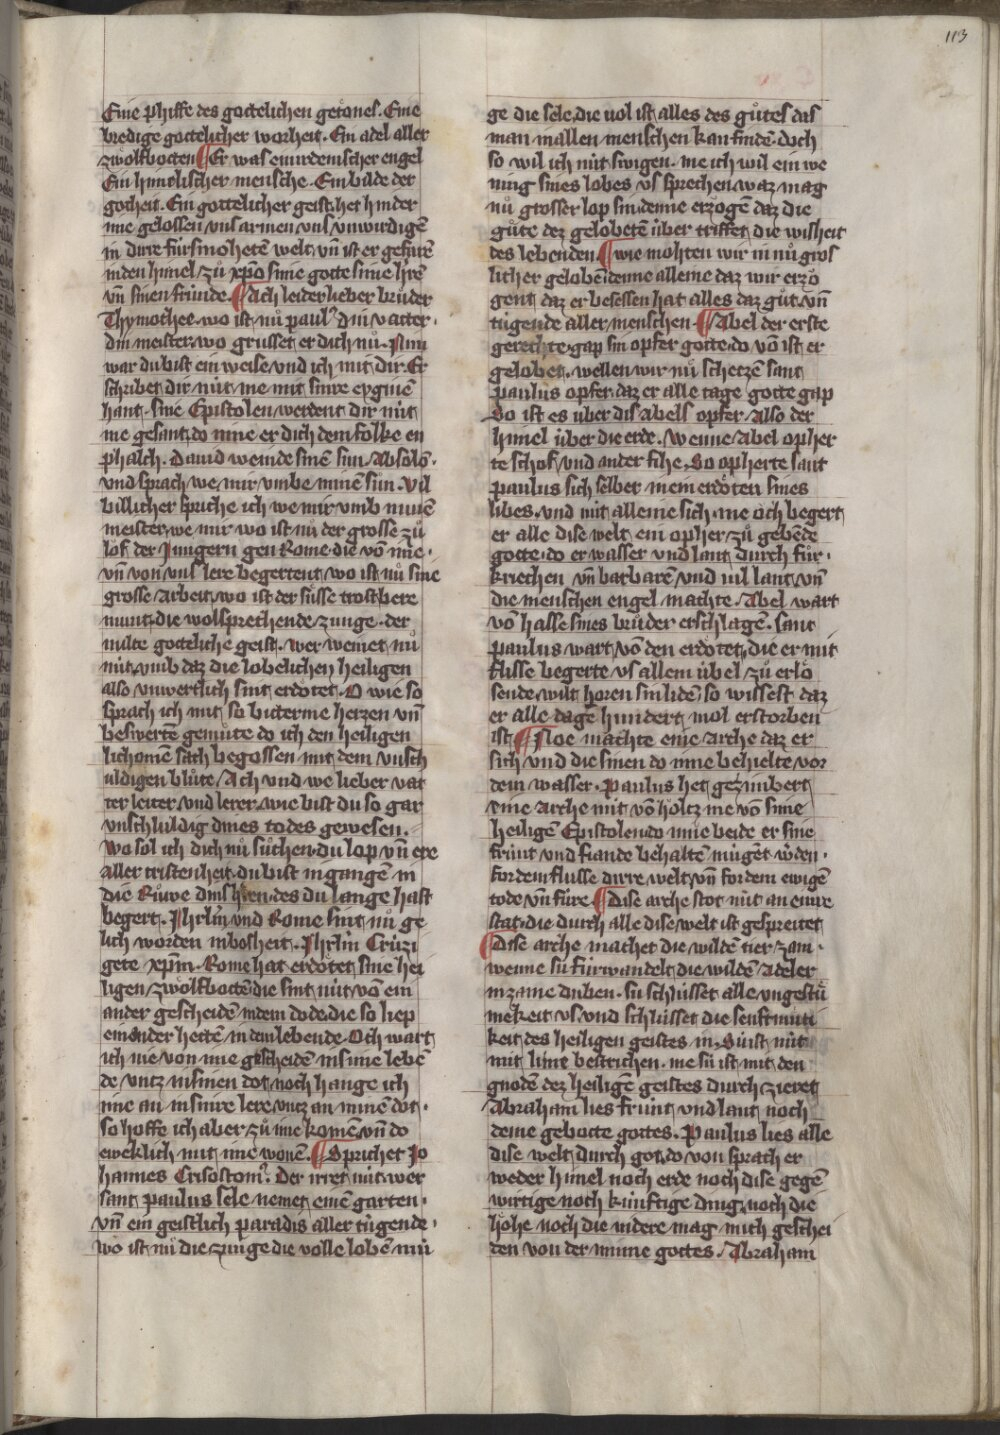 113
Eine phiffe des gottelichen getönes. Eine
bredige gottelicher worheit. Ein adel aller
zwölfbotten ¶ Er was ein irdenischer engel
Ein himelischer mensche. Ein bilde der
gotheit. Ein gottelicher geist. het hinder
ime gelossen uns armen uns unwirdigē
in dirre fürsmohetē welt, vn̄ ist er gefarē
in den himel zů xp̄o sime gotte sime h're
vn̄ sinen fründe. ¶ Ach leider lieber brůder
Thymothee. wo ist nů paul9 din vatter.
din meister, wo grůsset er dich nů. Nim
war du bist ein weise vnd ich mit dir. Er
schribet dir nüt me mit sinre eyginē
hant. sine Epistolen werdent dir nüt
me gesant, do inne er dich dem folke en
phalch. Dauid weinde sinē sun Absolō.
vnd sprach we mir vmbe minē sůn. Vil
billicher spriche ich we mir vmb minē
meister, we mir wo ist nů der grosse zů
lof. der Jungern gen Rome die vō ime.
vn̄ von uns lere begertent, wo ist nů sine
grosse arbeit, wo ist der süsse trostbere
munt, die wolsprechende zunge. der
milte gotteliche geist. wer weinet nů
nüt, vmb daz die lobelichen heiligen
also vnwertlich sint erdötet. O wie so
sprach ich mit so bitterme herzen vn̄
beswertē gemůte do ich den heiligen
lichomē sach begossen mit dem vnsch
uldigen blůte. Ach vnd we lieber vat
ter leiter, vnd lerer, wie bist du so gar
vnschuldig dines todes gewesen.
Wo sol ich dich nů sůchen, du lop vn̄ ere
aller cristenheit, du bist in gangē in
die Růwe dins h'ren, des du lange hast
begert. Jhrlm̄ vnd Rome sint nů ge
lich worden in bosheit. Jhrlm̄ Crúzi
gete xp̄m. Rome hat erdötet sine hei
ligen zwölfbottē die sint nüt vō ein
ander gescheidē in dem dode, die so liep
einander hettē in dem lebende. Och wart
ich nie von ime gescheidē in sime lebē
de vntz in sinen dot, noch hange ich
ime an in sinre lere vntz an minē dot.
so hoffe ich aber zů ime komē, vn̄ do
eweklich mit ime wonē. ¶ Sprichet Jo
hannes Crisostom9. Der irret nüt, wer
sant paulus sele nemet einē garten.
vn̄ ein geistlich paradis aller tůgende.
wo ist nů die zunge die volle lobē mů
ge die sele, die vol ist alles des gůtes das
man in allen menschen kan findē. doch
so wil ich nüt swigen. me ich wil ein we
ning sines lobes vs sprechen, waz mag
nů grosser lop sin denne erzögē daz die
gůte dez gelobetē über triffet, die wisheit
des lebenden. ¶ wie mohten wir in nů gros
licher geloben denne alleine daz wir erzö
gent, daz er besessen hat alles daz gůt, vn̄
tugende aller menschen. ¶ Abel der erste
gerechte, gap sin opfer gotte, do vō ist er
gelobet. wellen wir nů schetzē sant
paulus opfer, daz er alle tage gotte gap
So ist es über dis abels opfer. Also der
himel über die erde. Wenne Abel opher
te schof, vnd ander fihe, So opherte sant
paulus sich selber in dem erdötē sines
libes. vnd nüt alleine sich, me och begert
er alle dise welt, ein opher zů gebēde
gotte, do er wasser vnd lant durch fůr.
kriechen vn̄ barbarē vnd vil lant, vn̄
die menschen engel machte. Abel wart
vō hasse sines brůder erschlagē. Sant
paulus wart vō den erdötet, die er mit
flisse begerte vs allem übel zů erlö
sende, wilt horen sin lidē so wissest daz
er alle dage hundert mol erstorben
ist ¶ Noe machte eine Arche daz er
sich vnd die sinen do inne behielte vor
dem wasser. Paulus het gezimbert
eine arche nüt vō holtz, me vō sine
heiligē Epistolen, do inne beide er sine
frünt vnd fiande behaltē mügēt w'den.
for dem flusse dirre welt, vn̄ for dem ewigē
tode, vn̄ füre. ¶ Dise arche stot nüt an einre
stat, die durch alle dise welt ist gespreitet
¶ Dise arche machet die wildē tier zam.
wenne sü fürwandelt, die wildē adeler
in zame duben. sü schüsset alle vngestů
mekeit vs, vnd schlüsset die senftmüti
keit des heiligen geistes in. Sü ist nüt
mit lime bestrichen. me sü ist mit den
gnodē dez heiligē geistes durch zieret
Abraham lies frünt, vnd lant, noch
deme gebotte gottes. Paulus lies alle
dise welt, durch got, do von sprach er
weder himel noch erde noch dise gegē
wirtige noch künftige ding, noch die
höhe noch die nidere mag mich geschei
den von der minne gottes. Abraham